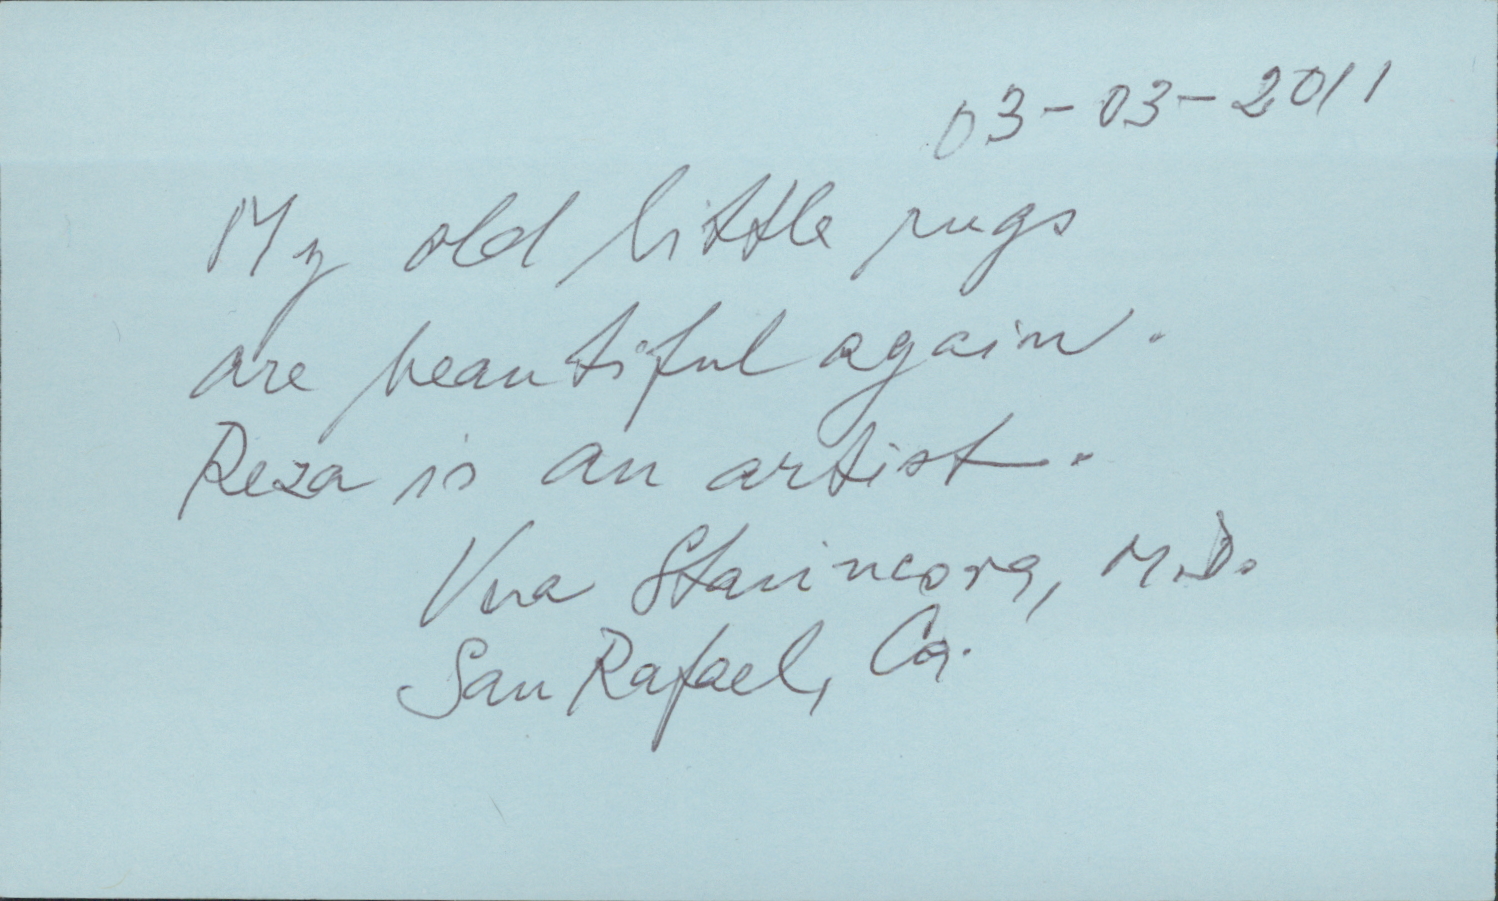 03-03-2011
My old little rugs
are beautiful again.
Reza is an artist.
M.D.
San Rafael, Ca.